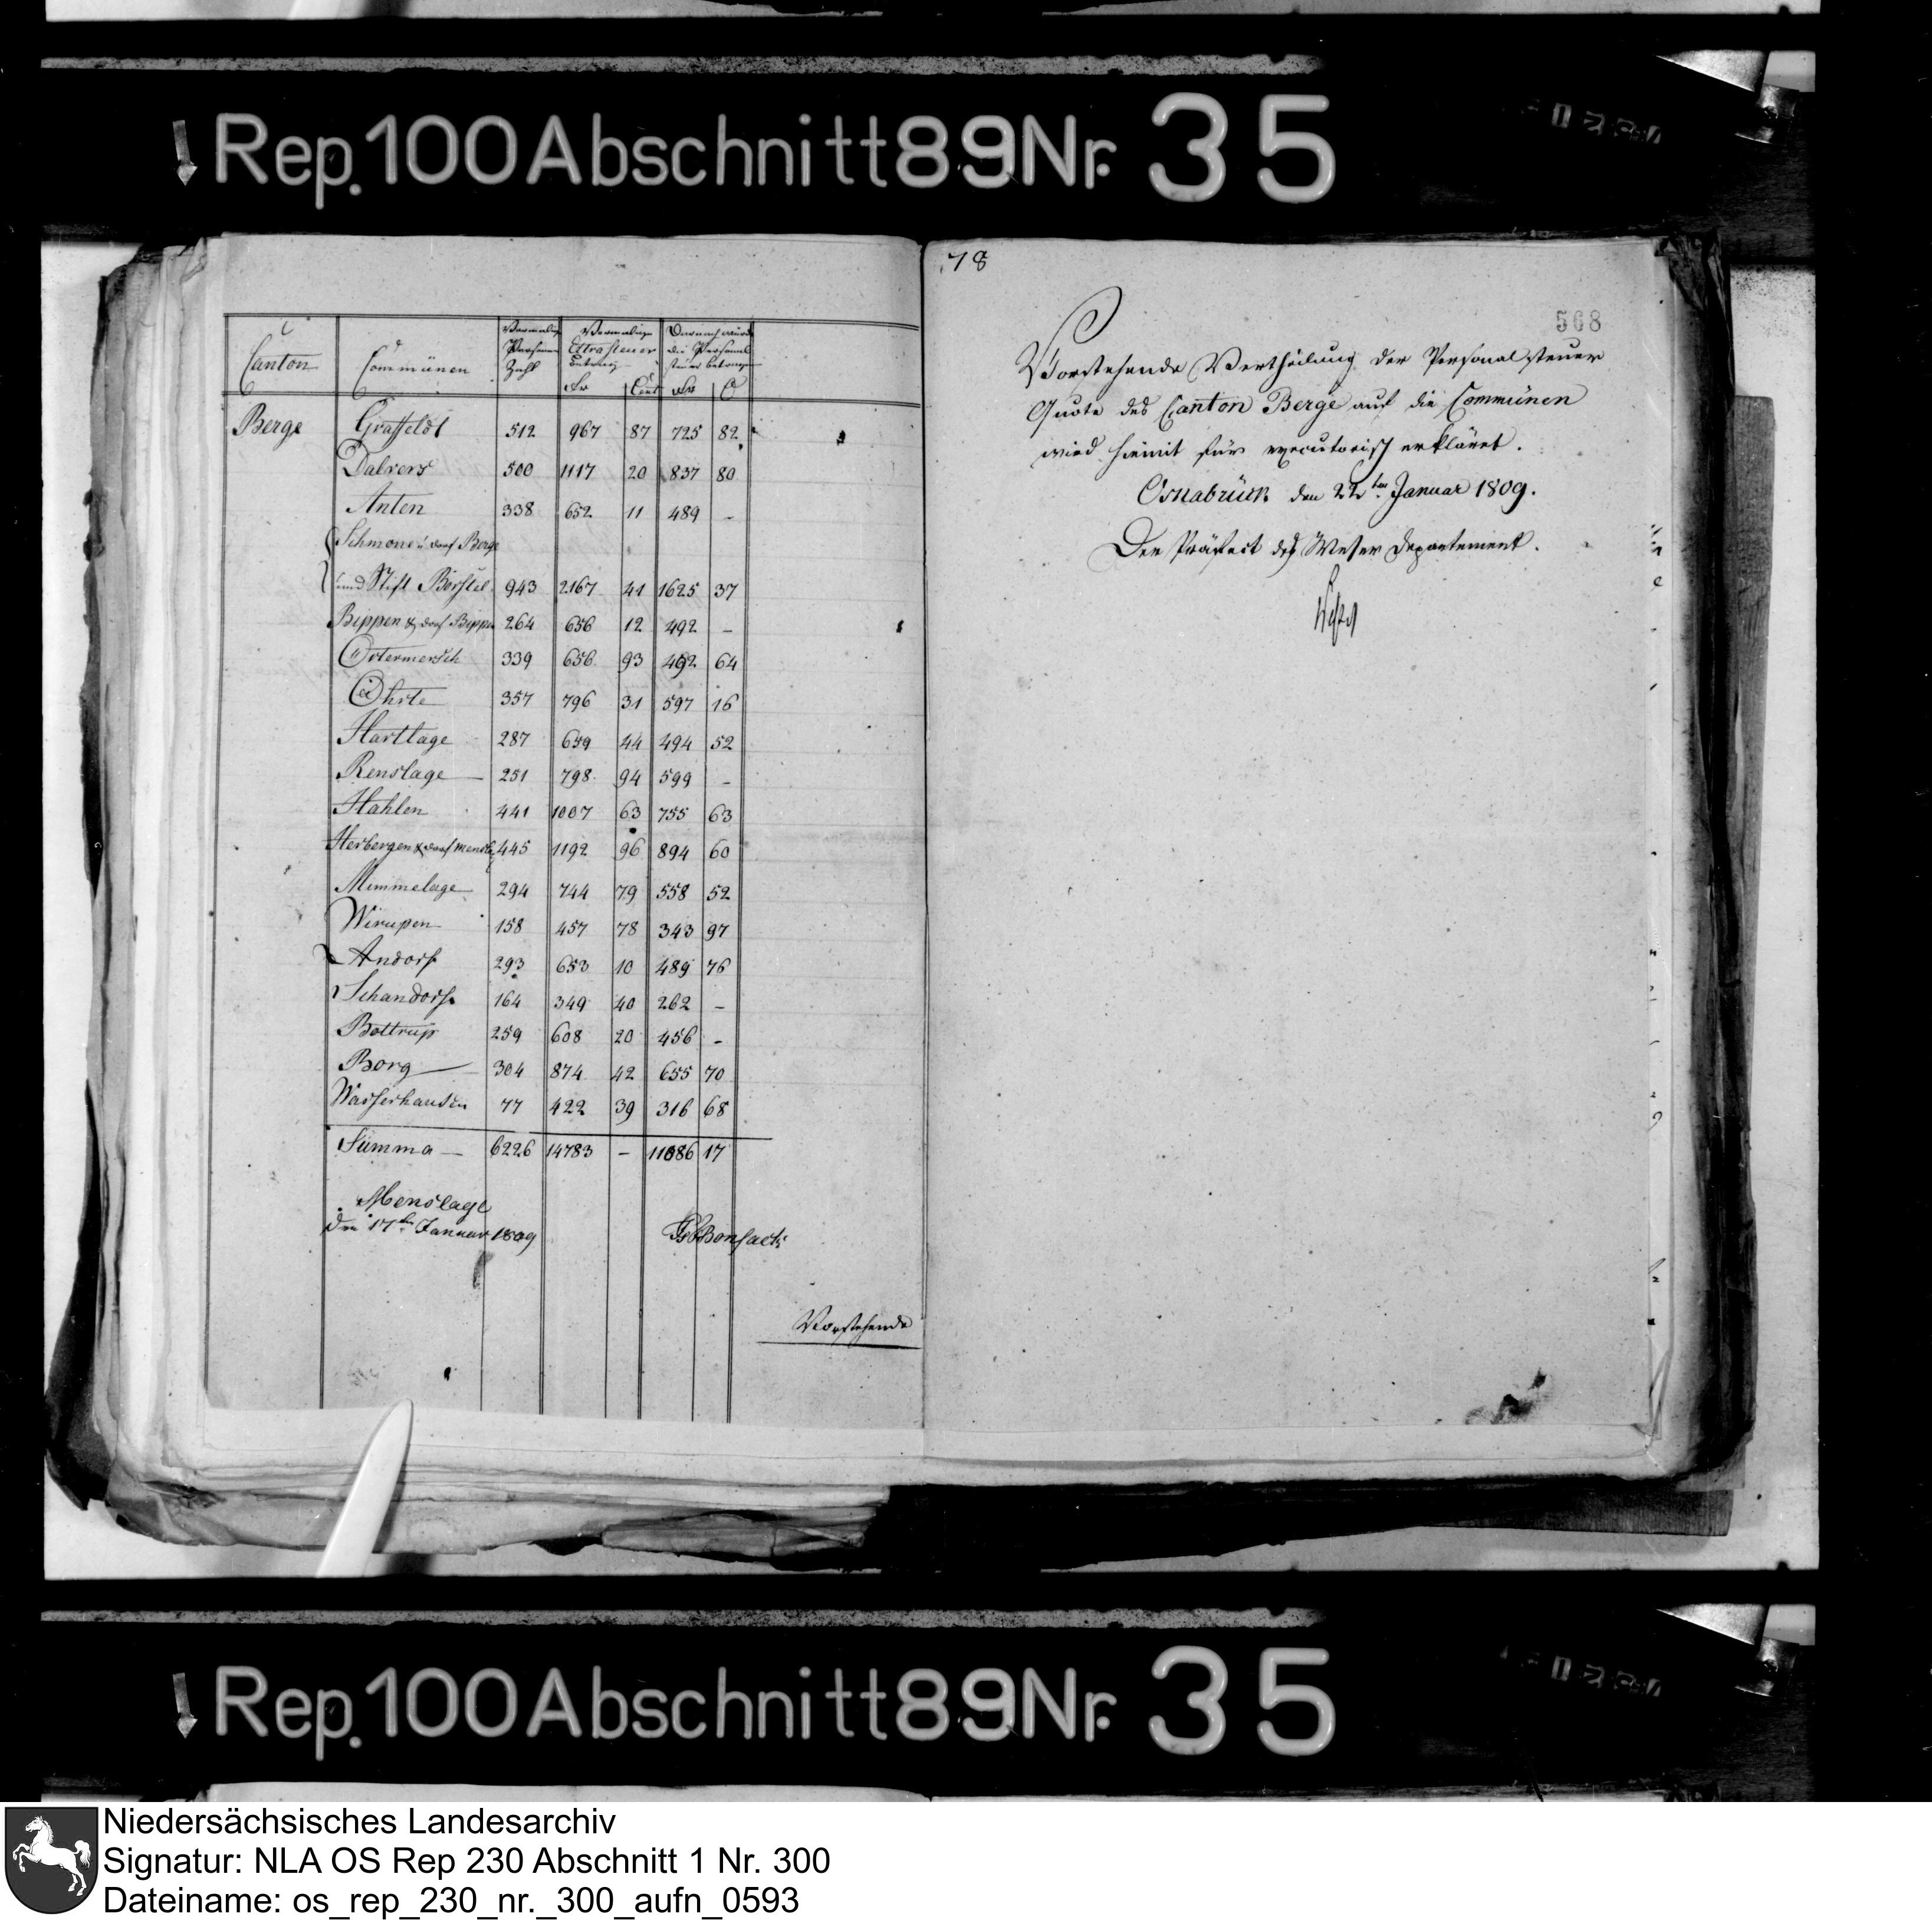 Rep. 100 Abschnitt 89 Nr. 35
Canton Communen Vormalige Personen Zahl Vormalige Extrasteuer betrug Fr Cent Darnach würde die Personal steuer betragen Fr C
Berge Graffeldt 512 967 87 725 82
Dalvers 500 1117 20 837 80
Anten 338 652 11 489 -
Schmone u. Dorf Berge
und Stift Börstel 943 2167 41 1625 37
Bippen & Dorf Bippen 264 656 12 492 -
Ostermersch 339 656 93 492 64
Ohrte 357 796 31 597 16
Hartlage 287 659 44 494 52
Renslage 251 798 94 599 -
Hahlen 441 1007 63 755 63
Herbergen & Dorf Menslg 445 1192 96 894 60
Mimmelage 294 744 79 558 52
Wirupen 158 457 78 343 97
Andorf 293 653 10 489 76
Schandorf 164 349 40 262 -
Bottrup 259 608 20 456 -
Borg 304 874 42 655 70
Wasserhausen 77 422 39 316 68
Summa 6226 14783 - 11086 17
Menslage
den 17ten Januar 1809
Vorstehende
78
568
Vorstehende Vertheilung der Personalsteuer
Quote des Canton Berge auf die Communen
wird hiemit für executorisch erkläret.
Osnabrück den 22ten Januar 1809.
Der Präfect des Weser Departement.
Rep. 100 Abschnitt 89 Nr. 35
Niedersächsisches Landesarchiv
Signatur: NLA OS Rep 230 Abschnitt 1 Nr. 300
Dateiname: os_rep_230_nr._300_aufn_0593